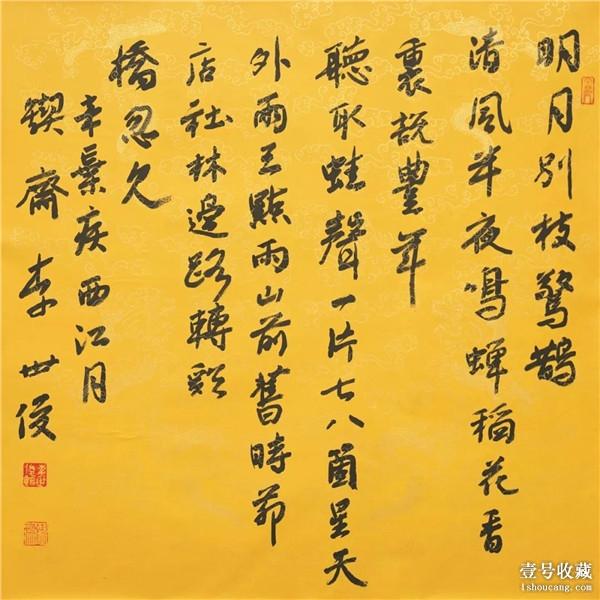 明月別枝驚鵲
清風半夜鳴蟬稻花香
裏説豐年
聽取蛙聲一片七八箇星天
外兩三點雨山前舊時茆
店社林邊路轉谿
橋忽見
辛棄疾西江月
鍥齋李世俊
壹号收藏
1shoucang.com